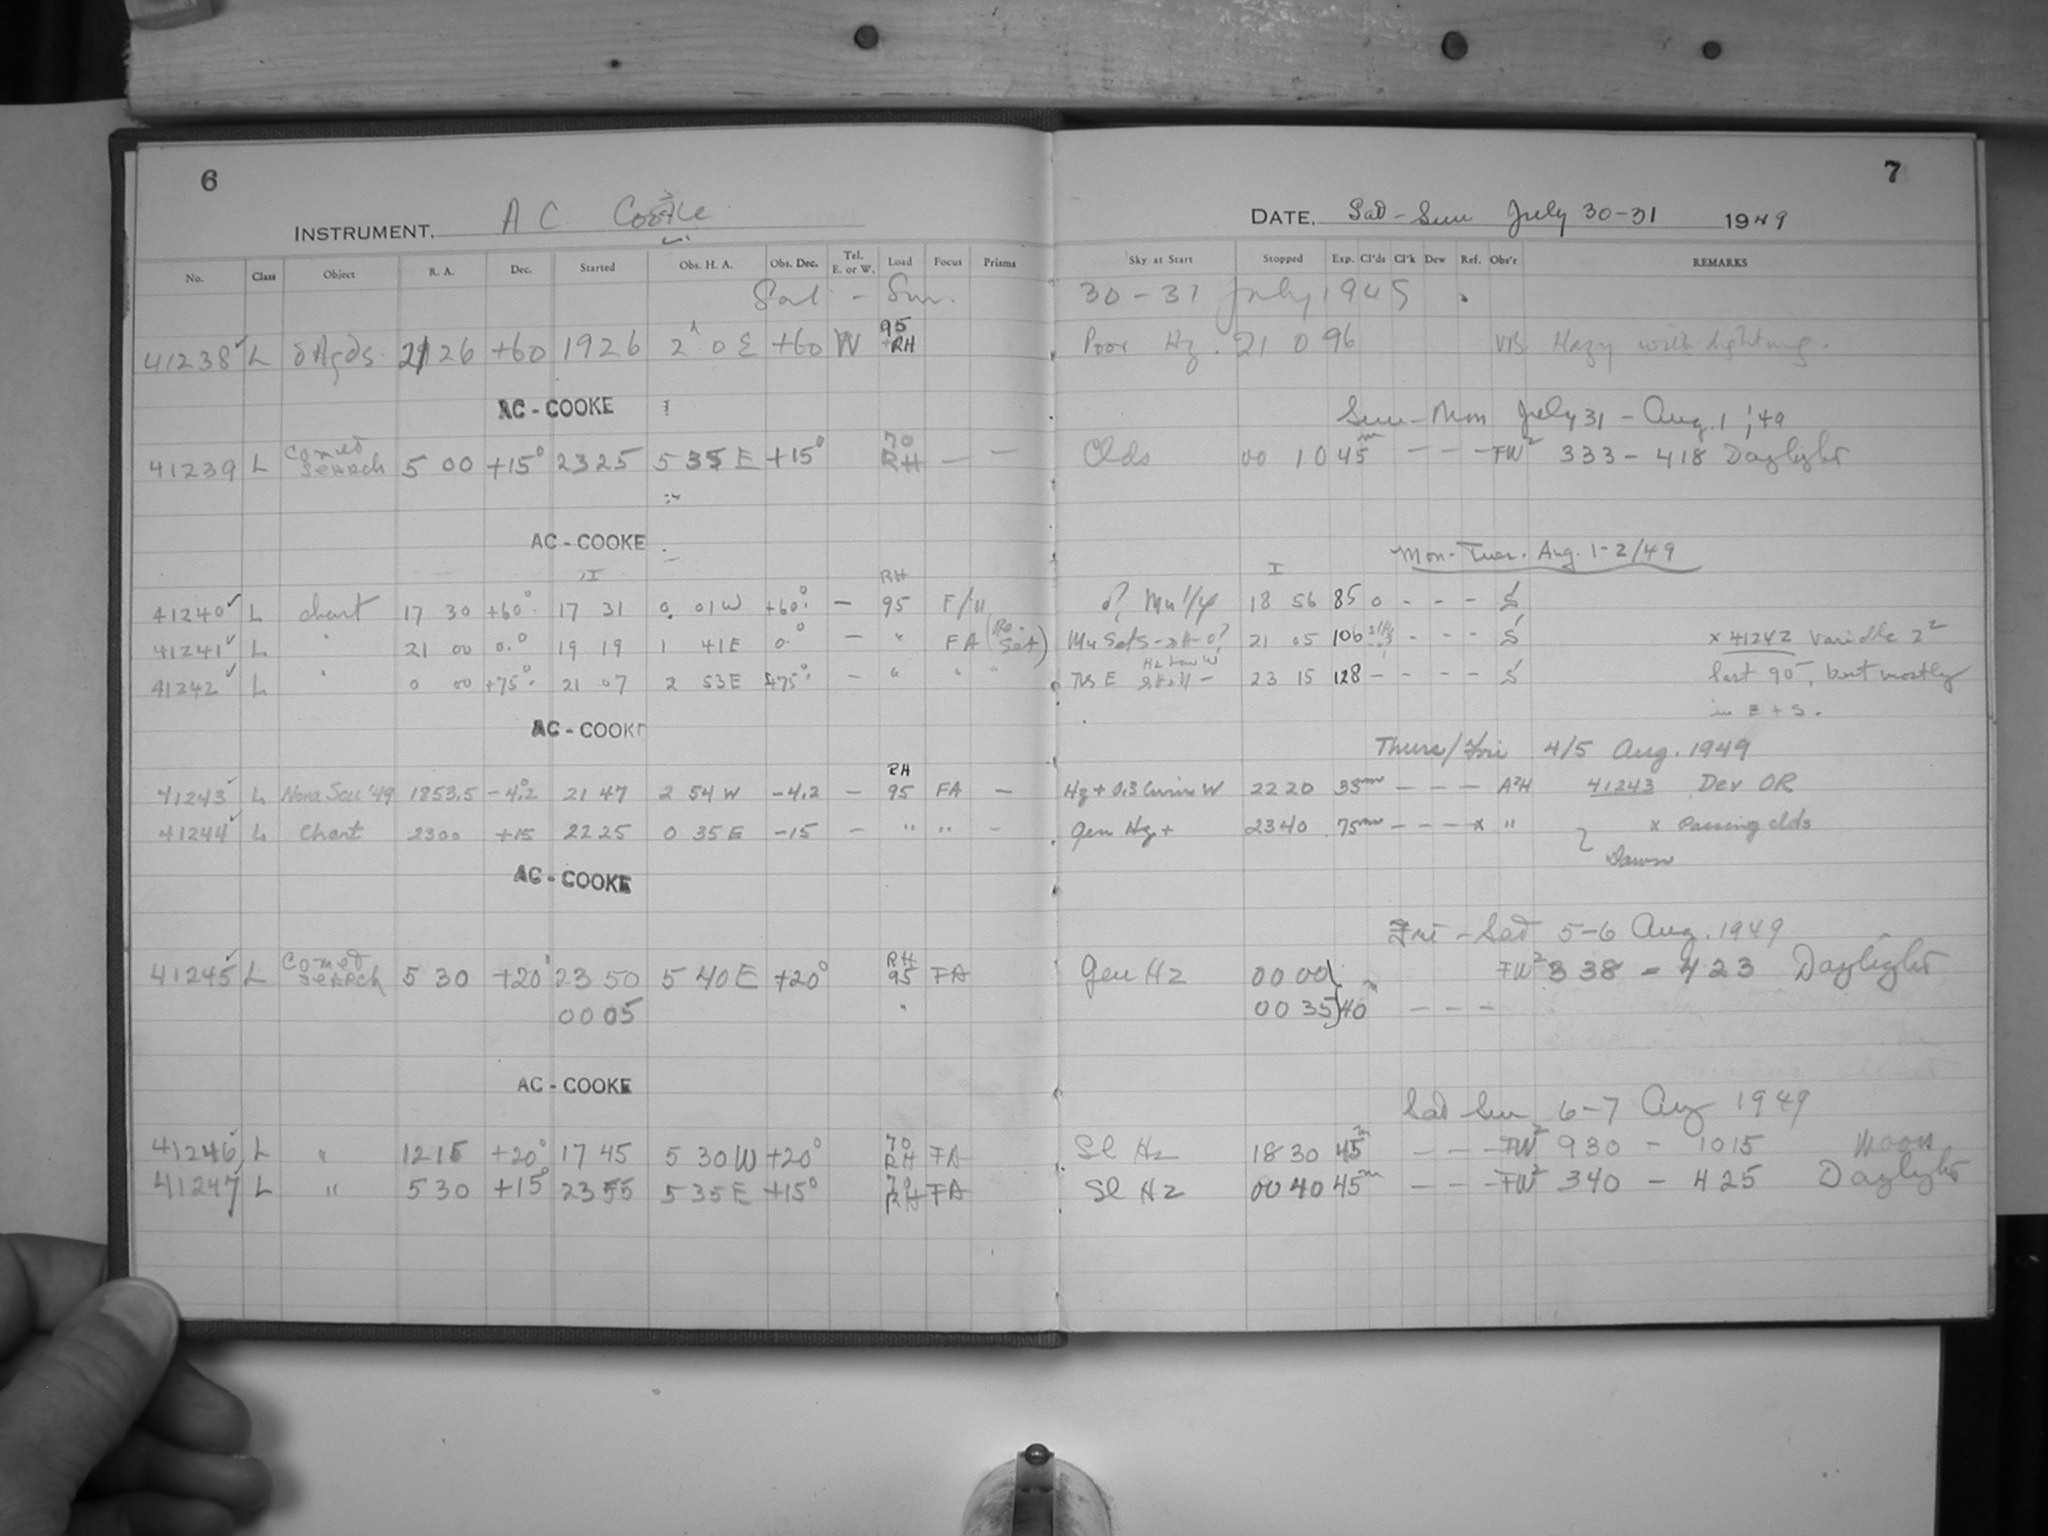 6
INSTRUMENT. A C. Cooke
No. Class Object R. A. Dec. Started Obs. H. A. Obs. Dec. Tel. E. or W. Load Focus Prisms
Sat - Sun.
41238 L 26 +60 1926 2 0 E +60 W 95 RH
AC - COOKE
41239 L Comet Search 5 00 +15° 23 25 5 35 E +15° 70 RH — —
AC - COOKE
41240 L chart 17 30 +60° 17 31 0 01 W +60° — RH 95 F/11
41241 L " 21 00 0° 19 19 1 41 E 0° — " FA (Re-Set)
41242 L " 0 00 +75° 21 07 2 53 E +75° — " " "
AC - COOKE
41243 L Nova Scu '49 1853.5 -4.2 21 47 2 54 W -4.2 — RH 95 FA —
41244 L Chart 2300 +15 22 25 0 35 E -15 — " " —
AC - COOKE
41245 L Comet Search 5 30 +20° 23 50 5 40 E +20° RH 95 FA
00 05
AC - COOKE
41246 L " 12 15 +20° 17 45 5 30 W +20° 70 RH FA
41247 L " 5 30 +15° 23 55 5 35 E +15° 70 RH FA
7
DATE. Sat - Sun July 30-31 1949
Sky at Start Stopped Exp. Cl'ds Cl'k Dew Ref. Obs'r REMARKS
30 - 31 July 1945
Poor Hz. 21 0 96 Hazy with lightning.
Sun - Mon July 31 - Aug. 1, '49
Clds 00 10 45m - - - FW² 333 - 418 Daylight
Mon - Tues. Aug. 1-2/49
18 56 85 0 - - - S
21 05 106 - - - S x 41242 variable 2²
Hz low W
23 15 128 - - - - S last 90m, but mostly
in E + S.
Thurs/Fri 4/5 Aug. 1949
Hz + 0.3 Cirrus W 22 20 33m - - - - A²H 41243 Dev OR
Gen Hz + 23 40 75m - - - x " x Passing clds
Dawn
Fri - Sat 5-6 Aug. 1949
Gen Hz 00 00 FW² 338 - 423 Daylight
00 35 } 40m - - -
Sat Sun 6-7 Aug 1949
Sl Hz 18 30 45m - - - FW² 930 - 1015 Moon
Sl Hz 00 40 45m - - - FW² 340 - 425 Daylight